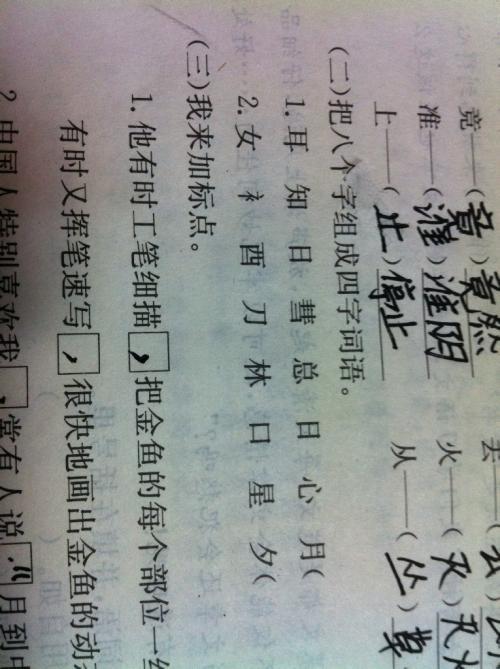 竞——(竟)竟然 丢——(去
准——(淮)淮阴 火——(灭)灭火
上——(止)停止 从——(丛)草
(二)把八个字组成四字词语。
1. 耳 知 日 彗 总 日 心 月(
2. 女 衤 酉 刀 林 口 星 夕(
(三)我来加标点。
1. 他有时工笔细描，把金鱼的每个部位一
有时又挥笔速写，很快地画出金鱼的动
2. 中国人特别喜欢我，常有人说：“月到中